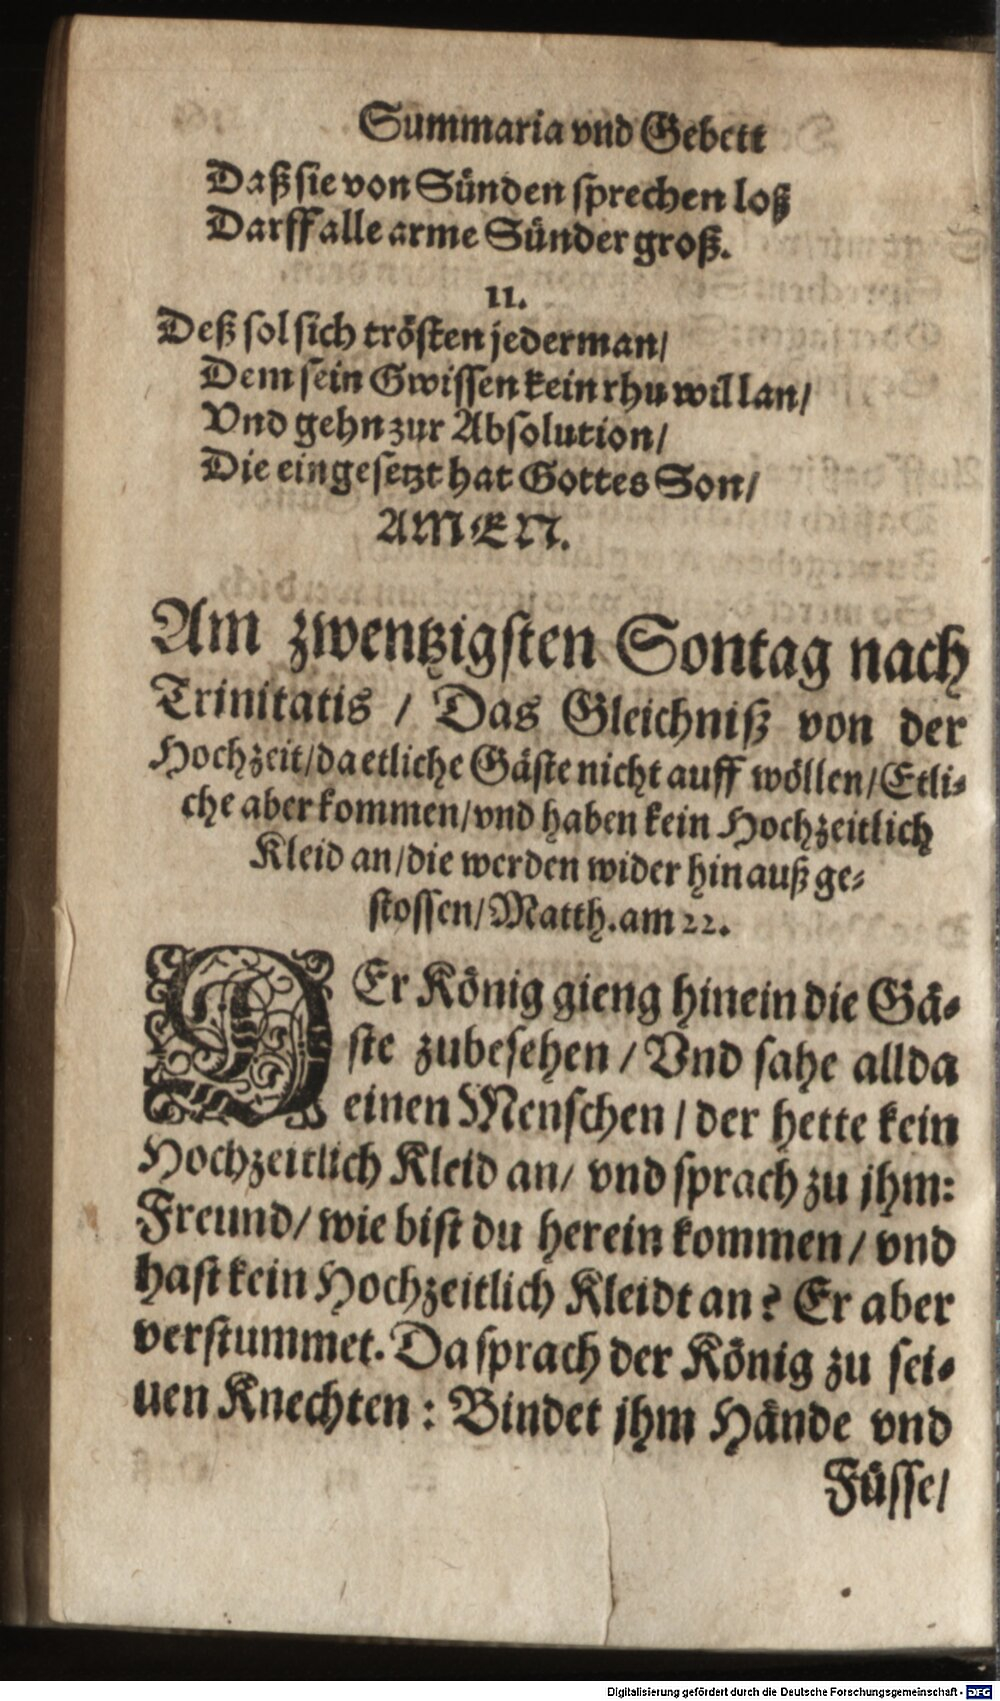 Summaria vnd Gebett
Daß sie von Sünden sprechen loß
Darff alle arme Sünder groß.
11.
Deß sol sich trösten jederman/
Dem sein Gwissen kein rhu will lan/
Vnd gehn zur Absolution/
Die eingesetzt hat Gottes Son/
AMEN.
Am zwentzigsten Sontag nach
Trinitatis / Das Gleichniß von der
Hochzeit/da etliche Gäste nicht auff wöllen/Etli-
che aber kommen/vnd haben kein Hochzeitlich
Kleid an/die werden wider hinauß ge-
stossen/Matth.am 22.
DEr König gieng hinein die Gä-
ste zubesehen / Vnd sahe allda
einen Menschen / der hette kein
Hochzeitlich Kleid an/ vnd sprach zu jhm:
Freund/ wie bist du herein kommen/ vnd
hast kein Hochzeitlich Kleidt an? Er aber
verstummet. Da sprach der König zu sei-
uen Knechten : Bindet jhm Hände vnd
Füsse/
Digitalisierung gefördert durch die Deutsche Forschungsgemeinschaft - DFG